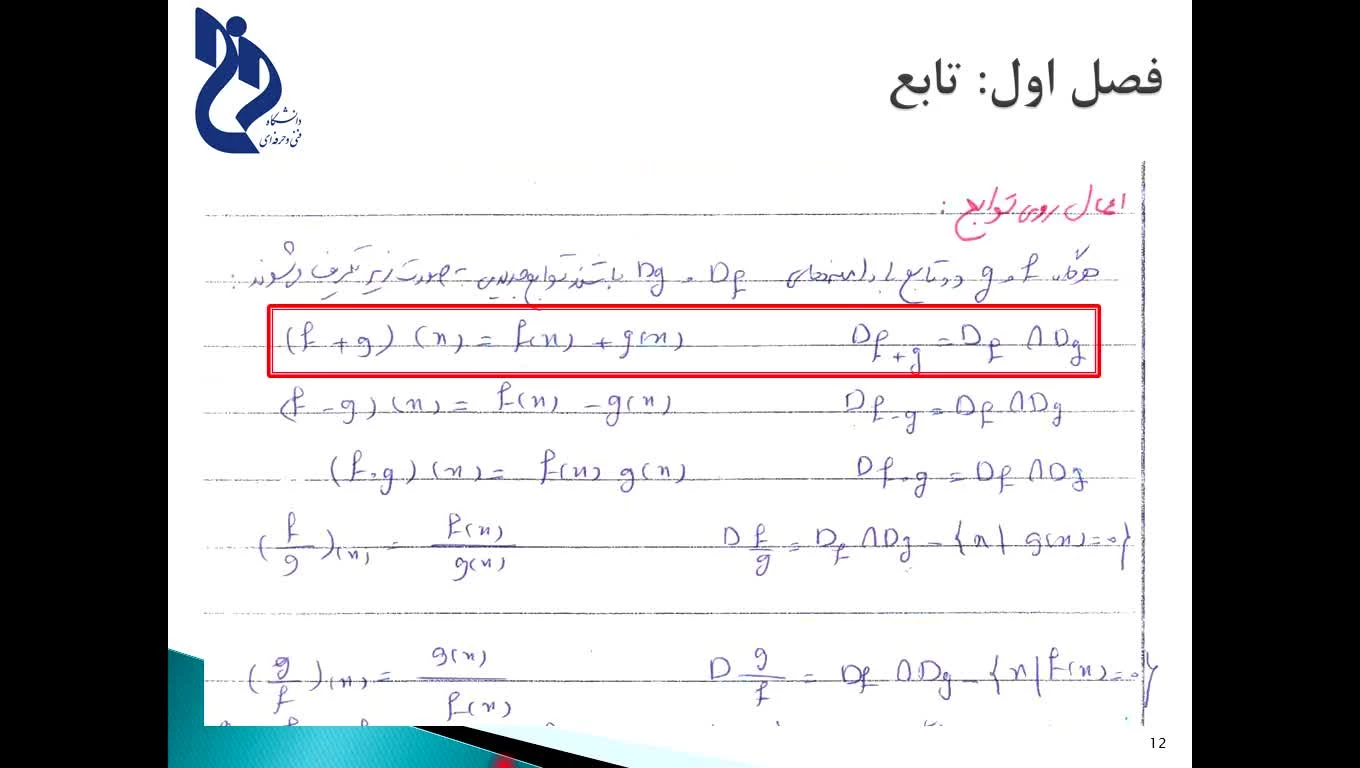 دانشگاه
فنی و حرفه‌ای
فصل اول: تابع
اعمال روی توابع :
هرگاه f و g دو تابع با دامنه‌های Df و Dg باشند توابع جدیدی به صورت زیر تعریف می‌شوند :
(f + g) (x) = f(x) + g(x) D f+g = Df ∩ Dg
(f - g) (x) = f(x) - g(x) D f-g = Df ∩ Dg
(f . g) (x) = f(x) g(x) D f.g = Df ∩ Dg
(f/g)(x) = f(x)/g(x) D f/g = Df ∩ Dg - {x | g(x)=0}
(g/f)(x) = g(x)/f(x) D g/f = Df ∩ Dg - {x | f(x)=0}
12